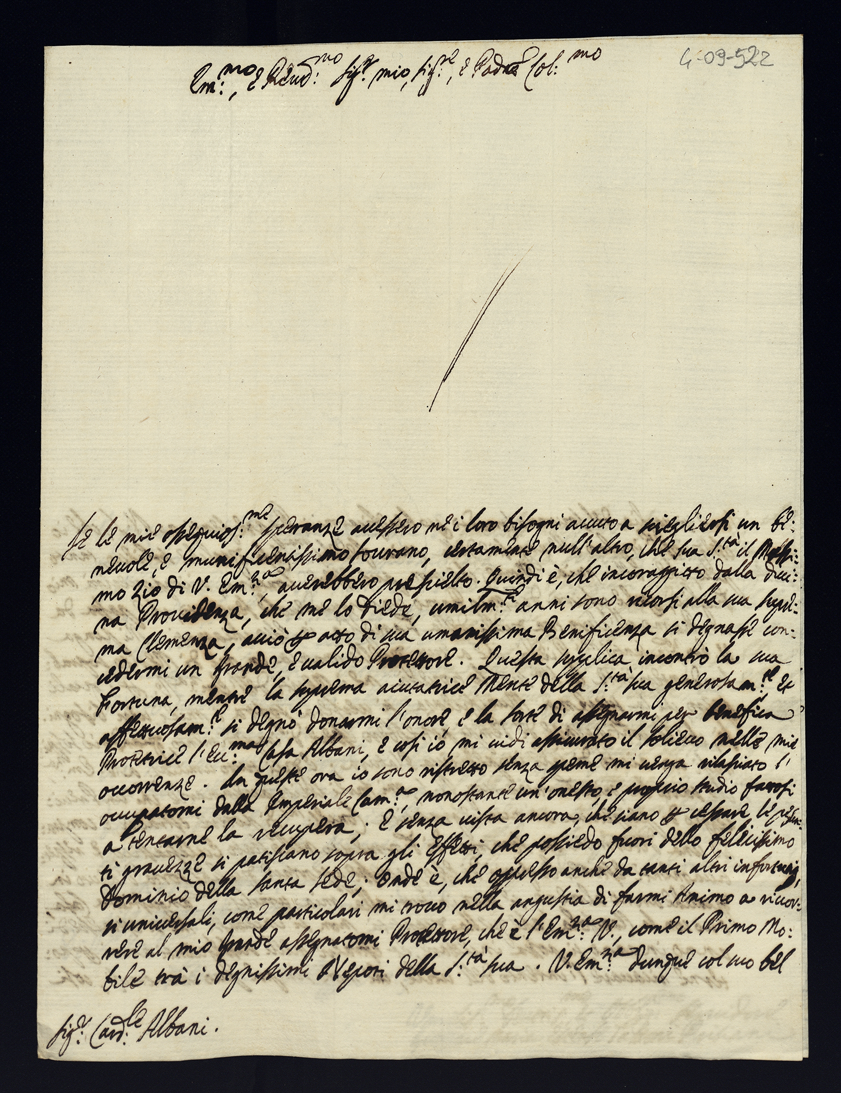 4-09-522
Em.mo, e Reud.mo Sig.r mio, Sig.re, e Padrõ Col.mo
Se le mie ossequios.me speranze auessero ne i loro bisogni auuto a sciegliersi un be:
neuole, e munificentissimo sourano, certamente null'altro, che sua S.tà il Massi:
mo Zio di V. Em.za, auerebbero prescielto. Quindi è, che incoraggito dalla diui:
na Prouidenza, che me lo diede, umilm.te anni sono ricorsi alla sua supre:
ma Clemenza, acciò atto di sua umanissima Beneficenza si degnasse con:
cedermi un grande, e ualido Protettore. Questa supplica incontrò la sua
Fortuna, mentre la suprema aiutatrice Mente della S.tà sua generosam.te et
affettuosam.te si degnò donarmi l'onore e la sorte di assegnarmi per benefica
Protettrice l'Ecc.ma Casa Albani, e così io mi uidi assicurato il solieuo nelle mie
occorrenze. In queste ora io sono ristretto senza speme mi uenga rilasciato l'
occupatomi dalla Imperiale Cam.ra, nonostante un'onesto, e proprio studio
a tentarne la recupera; e senza uista ancora, che siano cessare, le
ti grauezze si patiscano sopra gli effetti, che possiedo fuori dello felicissimo
Dominio della santa sede; onde è, che oppresso anche da tanti altri infortuni,
si uniuersali, come particolari mi trouo nella angustia di farmi Animo a ricor:
rere al mio grande assegnatomi Protettore, che è l'Em.za V., come il Primo Mo:
bile trà i degnissimi Nepoti della S.tà sua. V. Em.za dunque col suo bel
Sig.r Card.le Albani.